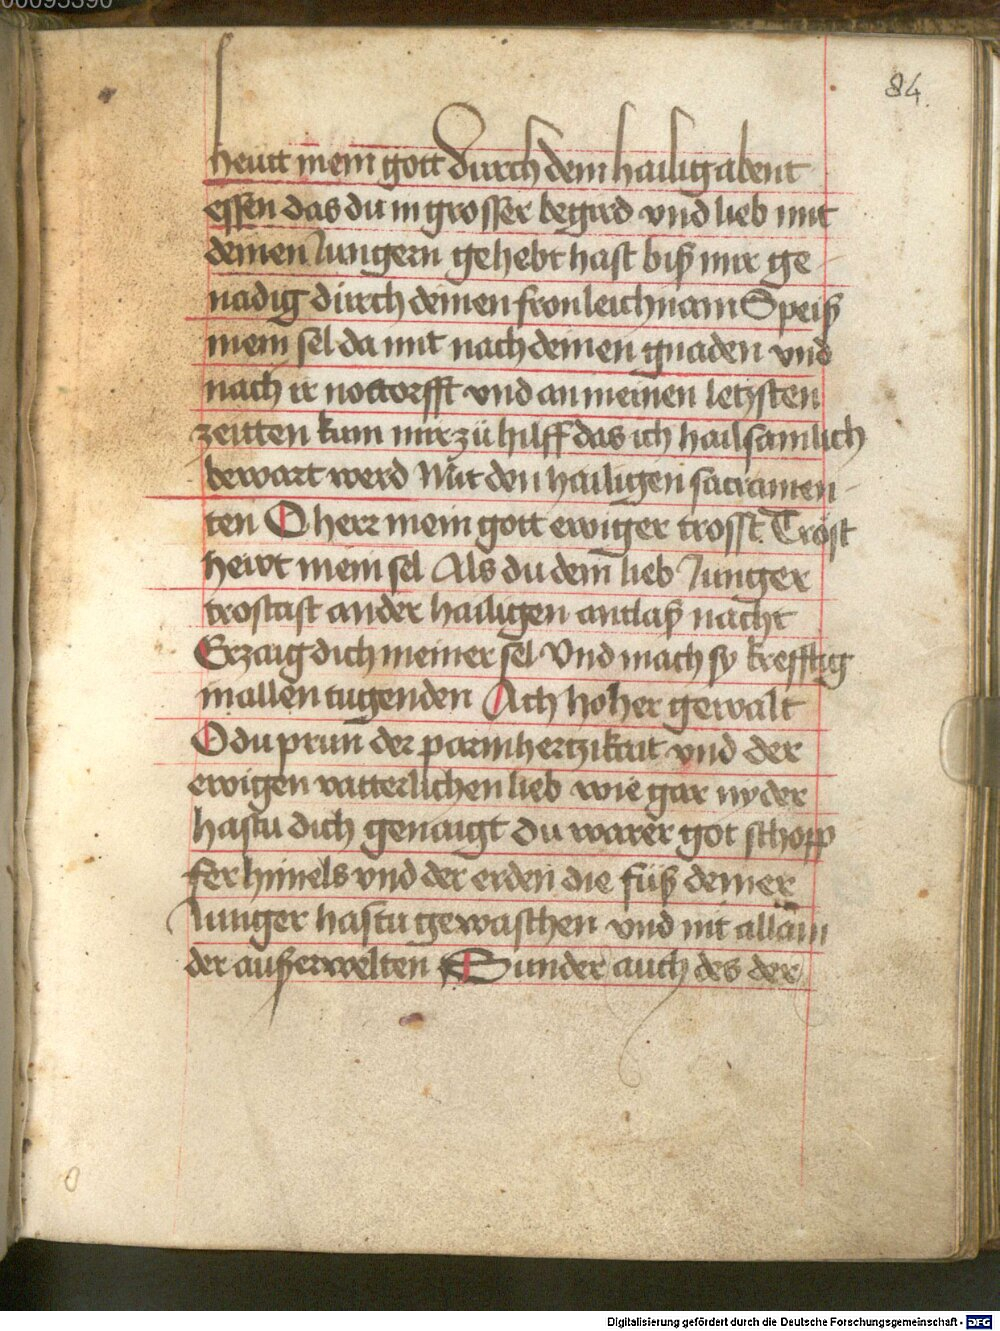 00095390
84.
heut mein gott durch dein hailig abent
essen das du in grosser begird vnd lieb mit
deinen Jungern gehebt hast biß mir ge-
nädig durch deinen fronleichnam Speiß
mein sel da mit nach deinen gnaden vnd
nach ir nottorfft vnd an meinen letzsten
zeitten kum mir zü hilff das ich hailsamlich
bewart werd Mit den hailigen sacramen-
ten O herr mein gott ewiger trosst Tröst
hewt mein sel Als du dein lieb Junger
trostast an der hailigen antlaß nacht
Erzaig dich meiner sel Vnd mach sy krefftig
in allen tugenden Ach hoher gewalt
O du prun der parmhertzikait vnd der
ewigen vatterlichen lieb wie gar nyder
hastu dich genaigt du warer got schöpp
fer himels vnd der erden die füß deiner
Junger hastu gewaschen vnd nit allain
der außerwelten Sunder auch des der
Digitalisierung gefördert durch die Deutsche Forschungsgemeinschaft - DFG